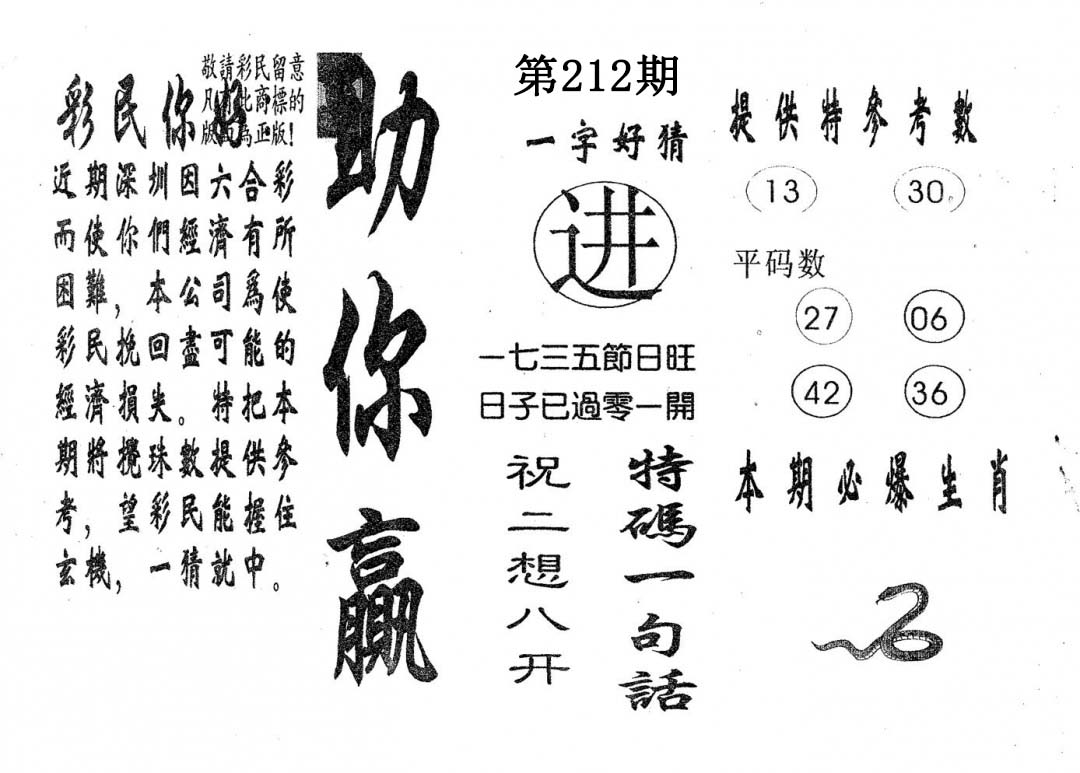 敬請彩民留意
凡有此商標的
版面為正版!
彩民你好
近期深圳因六合彩
而使你們經濟有所
困難,本公司為使
彩民挽回盡可能的
經濟損失。特把本
期將攪珠數提供參
考,望彩民能握住
玄機,一猜就中。
助你贏
第212期
一字好猜
进
一七三五節日旺
日子已過零一開
特碼一句話
祝二想八开
提供特參考數
13 30
平码数
27 06
42 36
本期必爆生肖